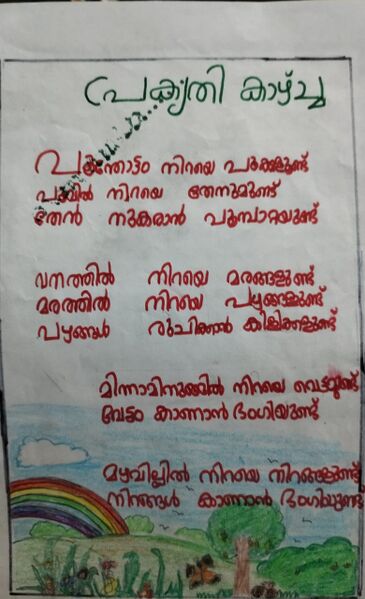 പ്രകൃതി കാഴ്ച
പൂന്തോട്ടം നിറയെ പൂക്കളുണ്ട്
പൂവിൽ നിറയെ തേനുമുണ്ട്
തേൻ നുകരാൻ പൂമ്പാറ്റയുണ്ട്
വനത്തിൽ നിറയെ മരങ്ങളുണ്ട്
മരത്തിൽ നിറയെ പഴങ്ങളുണ്ട്
പഴങ്ങൾ രുചിക്കാൻ കിളികളുണ്ട്
മിന്നാമിനുങ്ങിൽ നിറയെ വെട്ടമുണ്ട്
വേട്ടം കാണാൻ ഭംഗിയുണ്ട്
മഴവില്ലിൽ നിറയെ നിറങ്ങളുണ്ട്
നിറങ്ങൾ കാണാൻ ഭംഗിയുണ്ട്